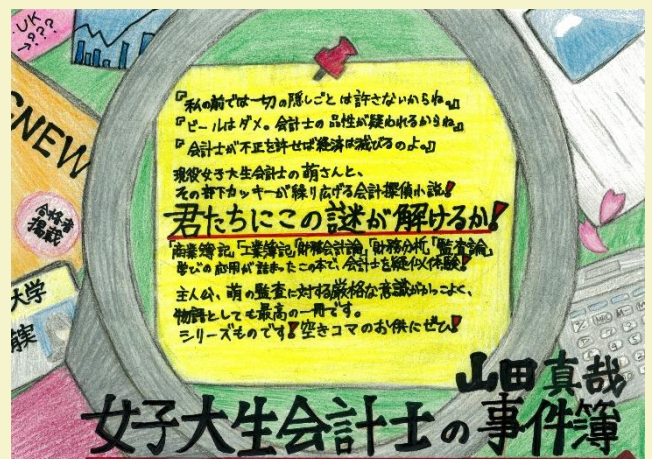 UK
→???
NEW
合格者
掲載
大学
『私の前では一切の隠しごとは許さないからね。』
『ビールはダメ。会計士の品性が疑われるからね。』
『会計士が不正を許せば経済は滅びるのよ。』
現役女子大生会計士の萌さんと、
その部下カッキーが繰り広げる会計探偵小説!
君たちにこの謎が解けるか!
「商業簿記」「工業簿記」「財務会計論」「財務分析」「監査論」
学びの応用が詰まったこの本で、会計士を疑似体験!
主人公、萌の監査に対する厳格な意識がかっこよく、
物語としても最高の一冊です。
シリーズものです!空きコマのお供にぜひ!
山田真哉
女子大生会計士の事件簿